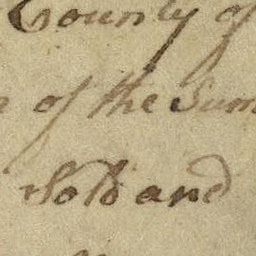 County of
of the Sum
Sold and